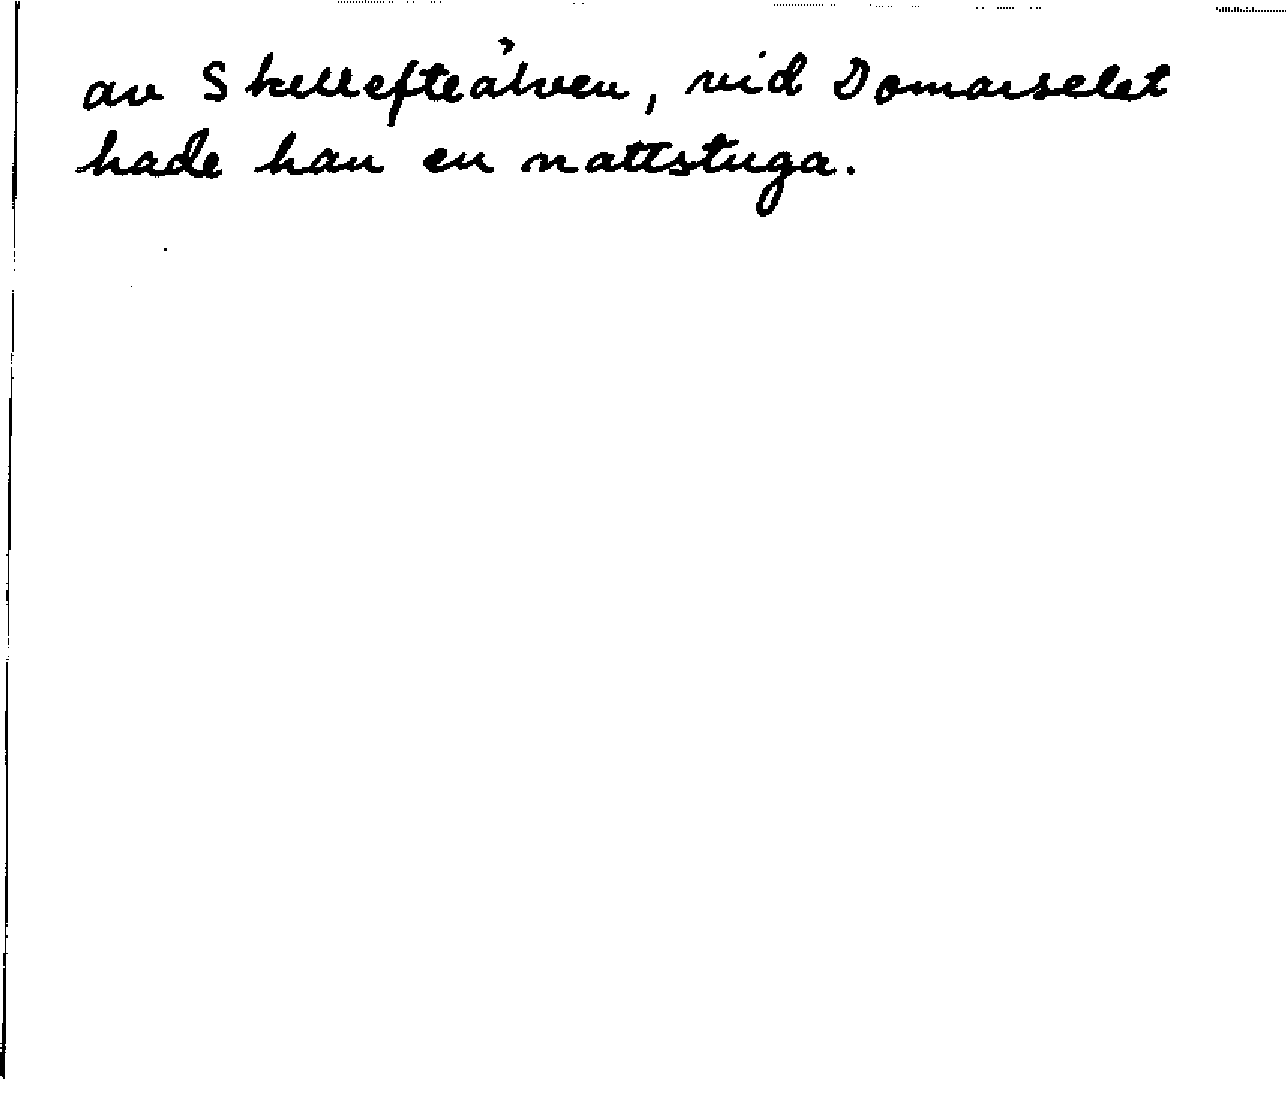 av Skellefteälven, vid Domarselet
hade han en nattstuga.